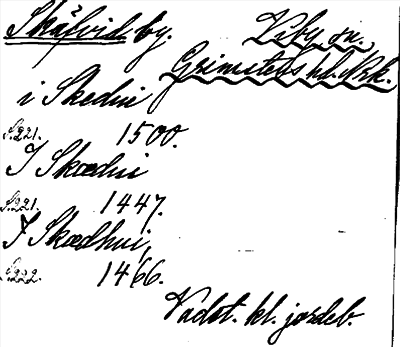 Skäfvid by. Viby sn.
Grimstens hd. Nrk.
i Skedui
S.221. 1500.
I Skædui
S.221. 1447.
I Skædhui,
S.222. 1466.
Vadst. kl. jordeb.